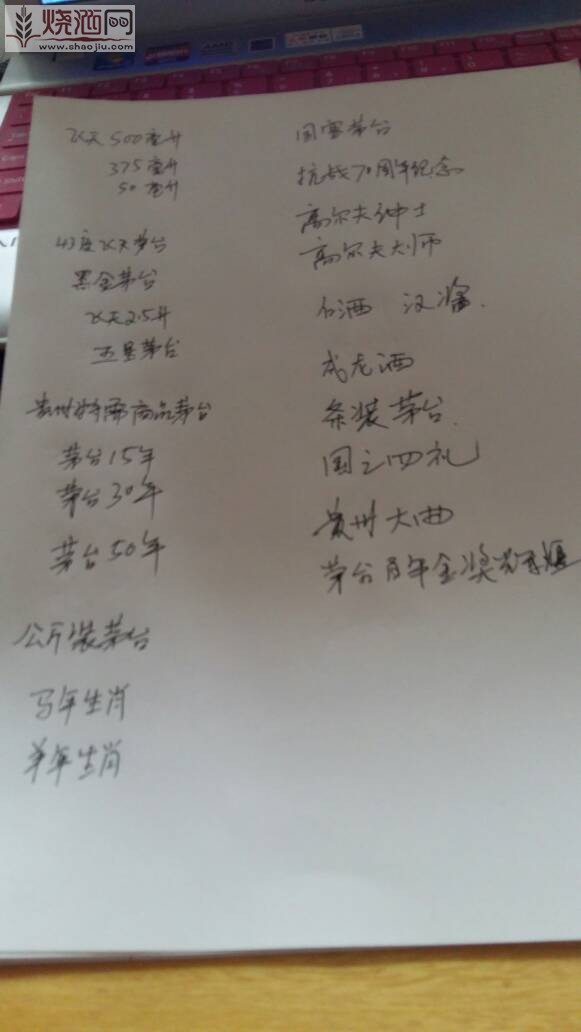 烧酒网
www.shaojiu.com
飞天500毫升
375毫升
50毫升
43度飞天茅台
黑金茅台
飞天2.5升
五星茅台
贵州特需商品茅台
茅台15年
茅台30年
茅台50年
公斤装茅台
马年生肖
羊年生肖
国宴茅台
抗战70周年纪念
高尔夫绅士
高尔夫大师
白酒 汉酱.
成龙酒
条装茅台.
国之四礼
贵州大曲
茅台百年金奖辉煌